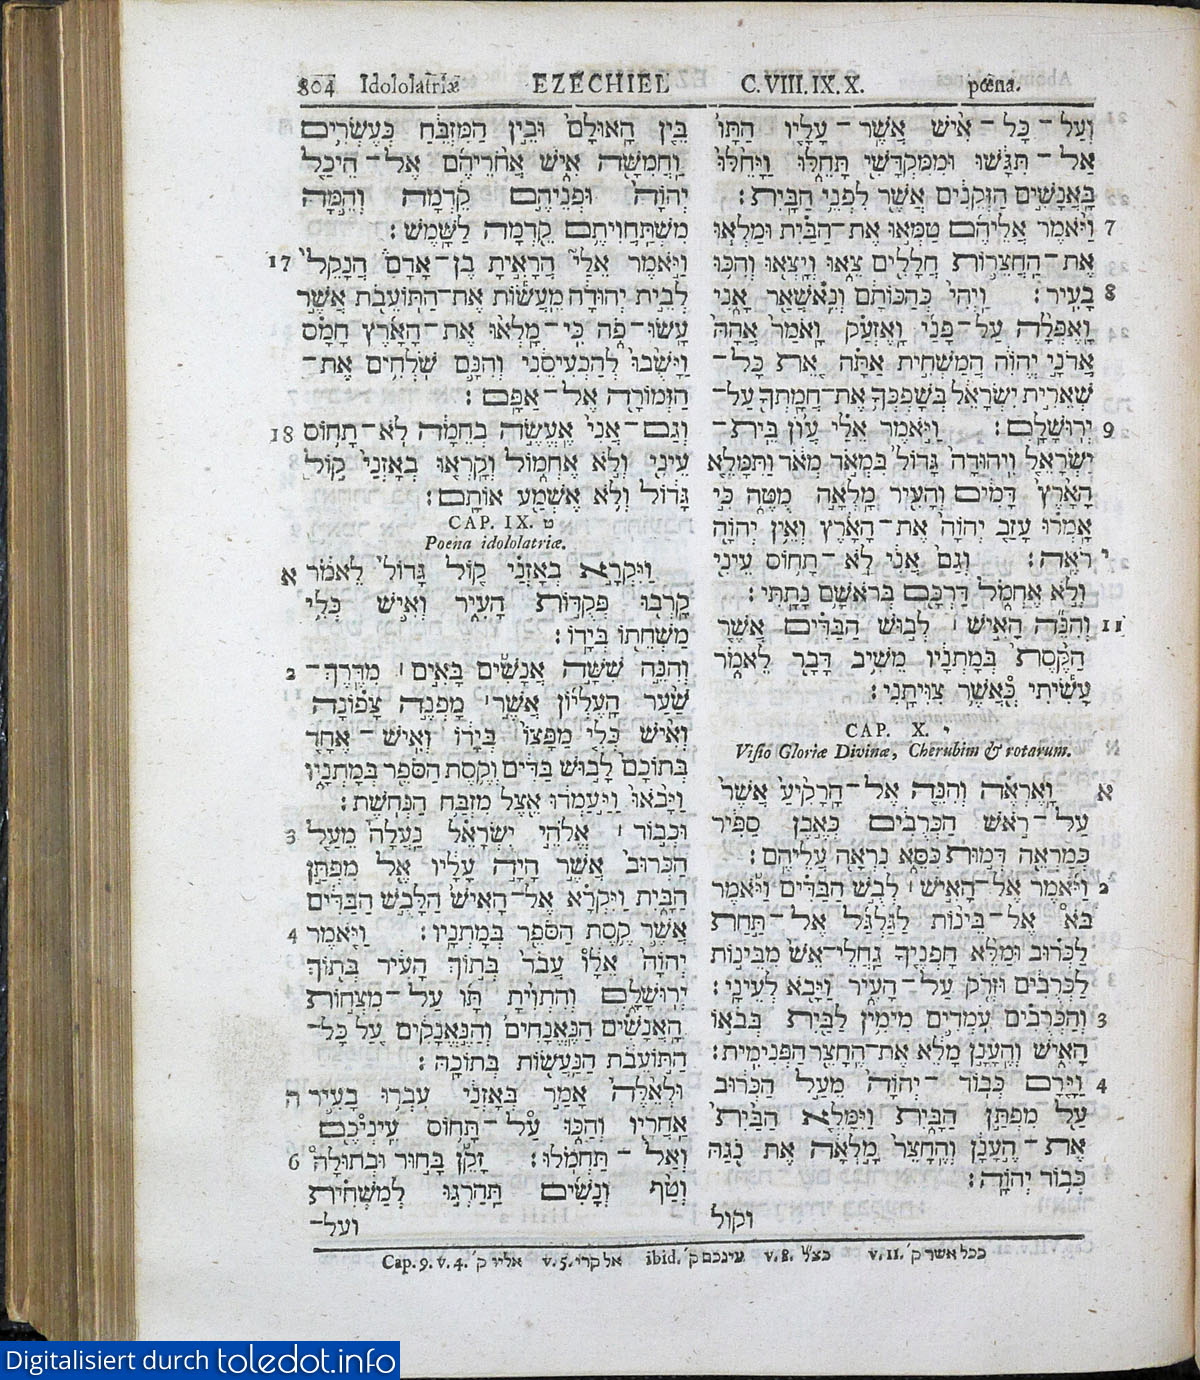 804 Idololatriæ EZECHIEL C. VIII. IX. X. pœna.
בֵּין הָאוּלָם וּבֵין הַמִּזְבֵּחַ כְּעֶשְׂרִים
וַחֲמִשָּׁה אִישׁ אֲחֹרֵיהֶם אֶל־הֵיכַל
יְהוָה וּפְנֵיהֶם קֵדְמָה וְהֵמָּה
מִשְׁתַּחֲוִיתֶם קֵדְמָה לַשָּׁמֶשׁ׃
17 וַיֹּאמֶר אֵלַי הֲרָאִיתָ בֶן־אָדָם הֲנָקֵל
לְבֵית יְהוּדָה מֵעֲשׂוֹת אֶת־הַתּוֹעֵבֹת אֲשֶׁר
עָשׂוּ־פֹה כִּי־מָלְאוּ אֶת־הָאָרֶץ חָמָס
וַיָּשֻׁבוּ לְהַכְעִיסֵנִי וְהִנָּם שֹׁלְחִים אֶת־
הַזְּמוֹרָה אֶל־אַפָּם׃
18 וְגַם־אֲנִי אֶעֱשֶׂה בְחֵמָה לֹא־תָחוֹס
עֵינִי וְלֹא אֶחְמוֹל וְקָרְאוּ בְאָזְנַי קוֹל
גָּדוֹל וְלֹא אֶשְׁמַע אוֹתָם׃
CAP. IX. ט
Poena idololatriæ.
א וַיִּקְרָא בְאָזְנַי קוֹל גָּדוֹל לֵאמֹר
קָרְבוּ פְּקֻדּוֹת הָעִיר וְאִישׁ כְּלִי
מַשְׁחֵתוֹ בְּיָדוֹ׃
2 וְהִנֵּה שִׁשָּׁה אֲנָשִׁים בָּאִים ׀ מִדֶּרֶךְ־
שַׁעַר הָעֶלְיוֹן אֲשֶׁר ׀ מָפְנֶה צָפוֹנָה
וְאִישׁ כְּלִי מַפָּצוֹ בְּיָדוֹ וְאִישׁ־אֶחָד
בְּתוֹכָם לָבוּשׁ בַּדִּים וְקֶסֶת הַסֹּפֵר בְּמָתְנָיו
וַיָּבֹאוּ וַיַּעַמְדוּ אֵצֶל מִזְבַּח הַנְּחֹשֶׁת׃
3 וּכְבוֹד ׀ אֱלֹהֵי יִשְׂרָאֵל נַעֲלָה מֵעַל
הַכְּרוּב אֲשֶׁר הָיָה עָלָיו אֶל מִפְתַּן
הַבָּיִת וַיִּקְרָא אֶל־הָאִישׁ הַלָּבֻשׁ הַבַּדִּים
4 אֲשֶׁר קֶסֶת הַסֹּפֵר בְּמָתְנָיו׃ וַיֹּאמֶר
יְהוָה אֵלָו עֲבֹר בְּתוֹךְ הָעִיר בְּתוֹךְ
יְרוּשָׁלִָם וְהִתְוִיתָ תָּו עַל־מִצְחוֹת
הָאֲנָשִׁים הַנֶּאֱנָחִים וְהַנֶּאֱנָקִים עַל כָּל־
הַתּוֹעֵבֹת הַנַּעֲשׂוֹת בְּתוֹכָהּ׃
ה וּלְאֵלֶּה אָמַר בְּאָזְנַי עִבְרוּ בָעִיר
אַחֲרָיו וְהַכּוּ עַל־תָּחוֹס עֵינֵיכֶם
6 וְאַל־תַּחְמֹלוּ׃ זָקֵן בָּחוּר וּבְתוּלָה
וְטַף וְנָשִׁים תַּהַרְגוּ לְמַשְׁחִית
ועל־
וְעַל־כָּל־אִישׁ אֲשֶׁר־עָלָיו הַתָּו
אַל־תִּגַּשׁוּ וּמִמִּקְדָּשִׁי תָּחֵלּוּ וַיָּחֵלּוּ
בָּאֲנָשִׁים הַזְּקֵנִים אֲשֶׁר לִפְנֵי הַבָּיִת׃
7 וַיֹּאמֶר אֲלֵיהֶם טַמְּאוּ אֶת־הַבַּיִת וּמַלְאוּ
אֶת־הַחֲצֵרוֹת חֲלָלִים צֵאוּ וְיָצְאוּ וְהִכּוּ
8 בָעִיר׃ וַיְהִי כְּהַכּוֹתָם וְנֵאשֲׁאַר אָנִי
וָאֶפְּלָה עַל־פָּנַי וָאֶזְעַק וָאֹמַר אֲהָהּ
אֲדֹנָי יְהוִה הֲמַשְׁחִית אַתָּה אֵת כָּל־
שְׁאֵרִית יִשְׂרָאֵל בְּשָׁפְכְּךָ אֶת־חֲמָתְךָ עַל־
9 יְרוּשָׁלִָם׃ וַיֹּאמֶר אֵלַי עֲוֹן בֵּית־
יִשְׂרָאֵל וִיהוּדָה גָּדוֹל בִּמְאֹד מְאֹד וַתִּמָּלֵא
הָאָרֶץ דָּמִים וְהָעִיר מָלְאָה מֻטֶּה כִּי
אָמְרוּ עָזַב יְהוָה אֶת־הָאָרֶץ וְאֵין יְהוָה
י רֹאֶה׃ וְגַם אֲנִי לֹא־תָחוֹס עֵינִי
וְלֹא אֶחְמֹל דַּרְכָּם בְּרֹאשָׁם נָתָתִּי׃
11 וְהִנֵּה הָאִישׁ ׀ לְבֻוּשׁ הַבַּדִּים אֲשֶׁר
הַקֶּסֶת בְּמָתְנָיו מֵשִׁיב דָּבָר לֵאמֹר
עָשִׂיתִי כְּאֲשֶׁר צִוִּיתָנִי׃
CAP. X. י
Visio Gloriæ Divinæ, Cherubim & rotarum.
א וָאֶרְאֶה וְהִנֵּה אֶל־הָרָקִיעַ אֲשֶׁר
עַל־רֹאשׁ הַכְּרֻבִים כְּאֶבֶן סַפִּיר
כְּמַרְאֵה דְּמוּת כִּסֵּא נִרְאָה עֲלֵיהֶם׃
2 וַיֹּאמֶר אֶל־הָאִישׁ ׀ לְבֻשׁ הַבַּדִּים וַיֹּאמֶר
בֹּא אֶל־בֵּינוֹת לַגַּלְגַּל אֶל־תַּחַת
לַכְּרוּב וּמַלֵּא חָפְנֶיךָ גַחֲלֵי־אֵשׁ מִבֵּינוֹת
לַכְּרֻבִים וּזְרֹק עַל־הָעִיר וַיָּבֹא לְעֵינָי׃
3 וְהַכְּרֻבִים עֹמְדִים מִימִין לַבַּיִת בְּבֹאוֹ
הָאִישׁ וְהֶעָנָן מָלֵא אֶת־הֶחָצֵר הַפְּנִימִית׃
4 וַיָּרָם כְּבוֹד־יְהוָה מֵעַל הַכְּרוּב
עַל מִפְתַּן הַבָּיִת וַיִּמָּלֵא הַבַּיִת
אֶת־הֶעָנָן וְהֶחָצֵר מָלְאָה אֶת נֹגַהּ
כְּבוֹד יְהוָה׃
וקול
Cap. 9. v. 4. אליו ק׳ v. 5. אל קרי ibid. עינכם ק׳ v. 8. כצ״ל v. 11. ככל אשר ק׳
Digitalisiert durch toledot.info